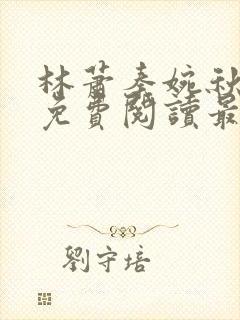 林蕭秦婉秋
免費閱讀最
劉守培